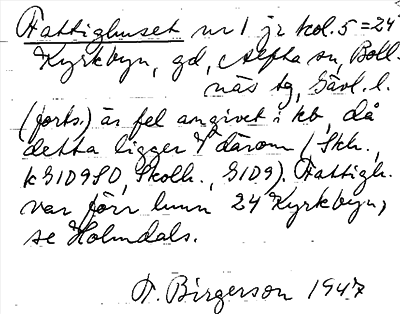 Fattighuset nr 1 jr kol. 5 = 24
Kyrkbyn, gd, Alfta sn, Boll-
näs tg, Gävl. l.
(forts.) är fel angivet i kb, då
detta ligger V därom (Skh.,
k GID9SO, Skolh., GID9). Fattigh.
var förr lmn 24 Kyrkbyn,
se Holmdals.
F. Birgerson 1947